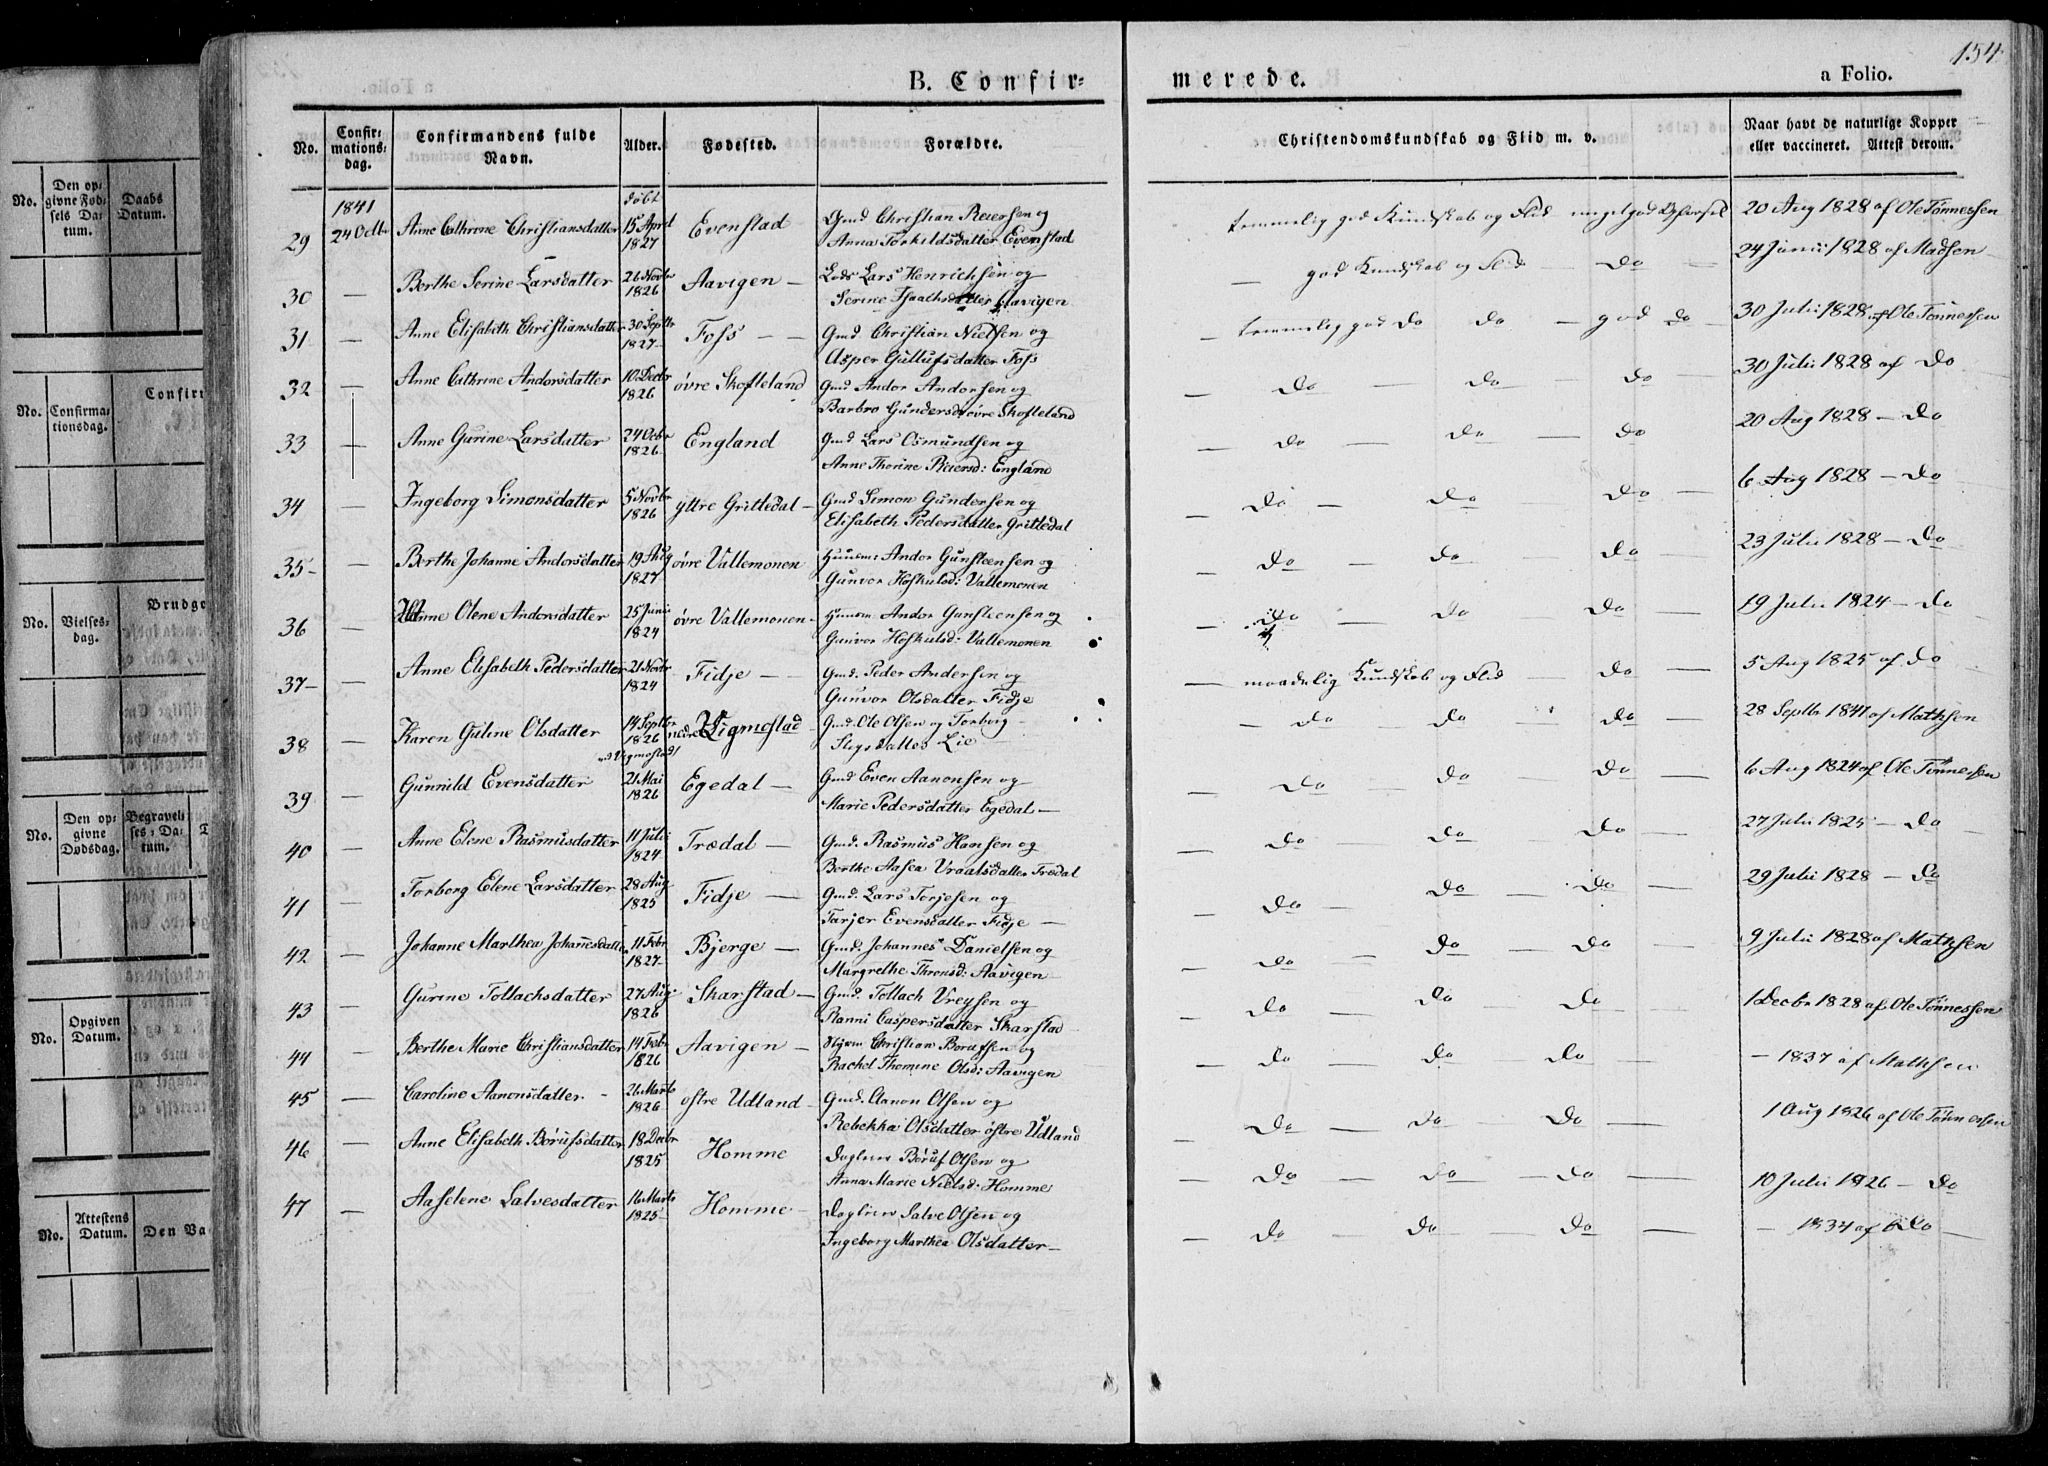 154
B. Confir=
merede.
a Folio.
No.
Confir=
mations=
dag.
Confirmandens fulde
Navn.
Alder.
Fødested.
Forældre.
Christendomskundskab og Flid m. v.
Naar havt de naturlige Kopper
eller vaccineret. Attest derom.
1841
døbt
29 24 Octbr Anne Cathrine Christiansdatter 15 April 1827 Evenstad Gmd Christian Reiersen og
Anna Torkildsdatter Evenstad
temmelig god Kundskab og Flid meget god Opførsel 20 Aug 1828 af Ole Tønnessen
30 — Berthe Serine Larsdatter 26 Novbr 1826 Aavigen — Lods Lars Henrichsen og
Serine Aavigen
— god Kundskab og Flid do — 24 Junii 1828 af Madsen
31 — Anne Elisabeth Christiansdatter 30 Septbr 1827 Foss — — Gmd Christian Nielsen og
Asper Gullufsdatter Foss
— temmelig god do do — god do — 30 Julii 1828 af Ole Tønnessen
32 — Anne Cathrine Andorsdatter 10 Decbr 1826 øvre Skofteland Gmd Andor Andorsen og
Barbro Gundersd øvre Skofteland
— do — do — do 30 Julii 1828 af do
33 — Anne Gurine Larsdatter 24 Octbr 1826 England Gmd Lars Osmundsen og
Anne Thorine Reiersd: England
— do — do — do 20 Aug 1828 — do
34 — Ingeborg Simonsdatter 5 Novbr 1826 yttre Grittedal — Gmd Simon Gundersen og
Elisabeth Pedersdatter Grittedal
— do — do do — 6 Aug 1828 — do
35 — Berthe Johanne Andorsdatter 19 Aug 1827 øvre Vallemonen Huusm: Andor Gunsteensen og
Gunvor Hoskulsd: Vallemonen
— do — do do — 23 Julii 1828 — do
36 — Anne Olene Andorsdatter 25 Junii 1824 øvre Vallemonen Huusm Andor Gunsteensen og
Gunvor Hoskulsd: Vallemonen
— do do do — 19 Julii 1824 — do
37 — Anne Elisabeth Pedersdatter 21 Novbr 1824 Fidje — Gmd. Peder Andersen og
Gunvor Olsdatter Fidje
— maadelig Kundskab og Flid — do — 5 Aug 1825 af do
38 — Karen Guline Olsdatter 14 Septbr 1826 nedre Vigmostad Gmd. Ole Olsen og Torborg
Lie
— do — do — do — 28 Septbr 1841 af Mathsen
39 — Gunnild Evensdatter 21 Mai 1826 Egedal — Gmd Even Aanonsen og
Marie Pedersdatter Egedal —
— do — do — do — 6 Aug 1824 af Ole Tønnessen
40 — Anne Elene Rasmusdatter 11 Julii 1824 Trædal — Gmd. Rasmus Hansen og
Berthe Aasea Vraalsdatter Trædal
— do — do — do — 27 Julii 1825 — do
41 — Torborg Elene Larsdatter 28 Aug 1825 Fidje — Gmd. Lars Torjesen og
Tarjer Evensdatter Fidje —
— do — do — do — 29 Julii 1828 — do
42 — Johanne Marthea Johannesdatter 11 Febr 1827 Bjerge — Gmd. Johannes Danielsen og
Margrethe Thronsd: Aavigen
— do — do — do — 9 Julii 1828 af Mathsen
43 — Gurine Tollachsdatter 27 Aug: 1826 Skarstad — Gmd. Tollach Vreysen og
Ranni Caspersdatter Skarstad
— do — do — do — 1 Decbr 1828 af Ole Tønnessen
44 — Berthe Marie Christiansdatter 14 Febr 1826 Aavigen — Christian Børufsen og
Rachel Thomine Olsd: Aavigen
— do — do — do — — 1837 af Mathsen
45 — Caroline Aanonsdatter 26 Marts 1826 østre Udland — Gmd. Aanon Olsen og
Rebekka Olsdatter østre Udland
— do — do — do — 1 Aug 1826 af Ole Tønnessen
46 — Anne Elisabeth Børufsdatter 18 Decbr 1825 Homme Børuf Olsen og
Anna Marie Nielsd: Homme
— do — do — do — 10 Julii 1826 — do
47 — Aaselene Salvesdatter 16 Marts 1825 Homme — Salve Olsen og
Ingeborg Marthea Olsdatter —
— do — do — do — — 1834 af do —
No.
Den op=
givne Fød=
sels Da=
tum.
Daabs
Datum.
No.
Confirma=
tionsdag.
Confir
No.
Vielses=
dag.
Brudge
No.
Den op=
givne
Dødsdag.
Begravel=
ses=Da=
tum.
No.
Opgiven
Datum.
No.
Attestens
Datum.
Den Va